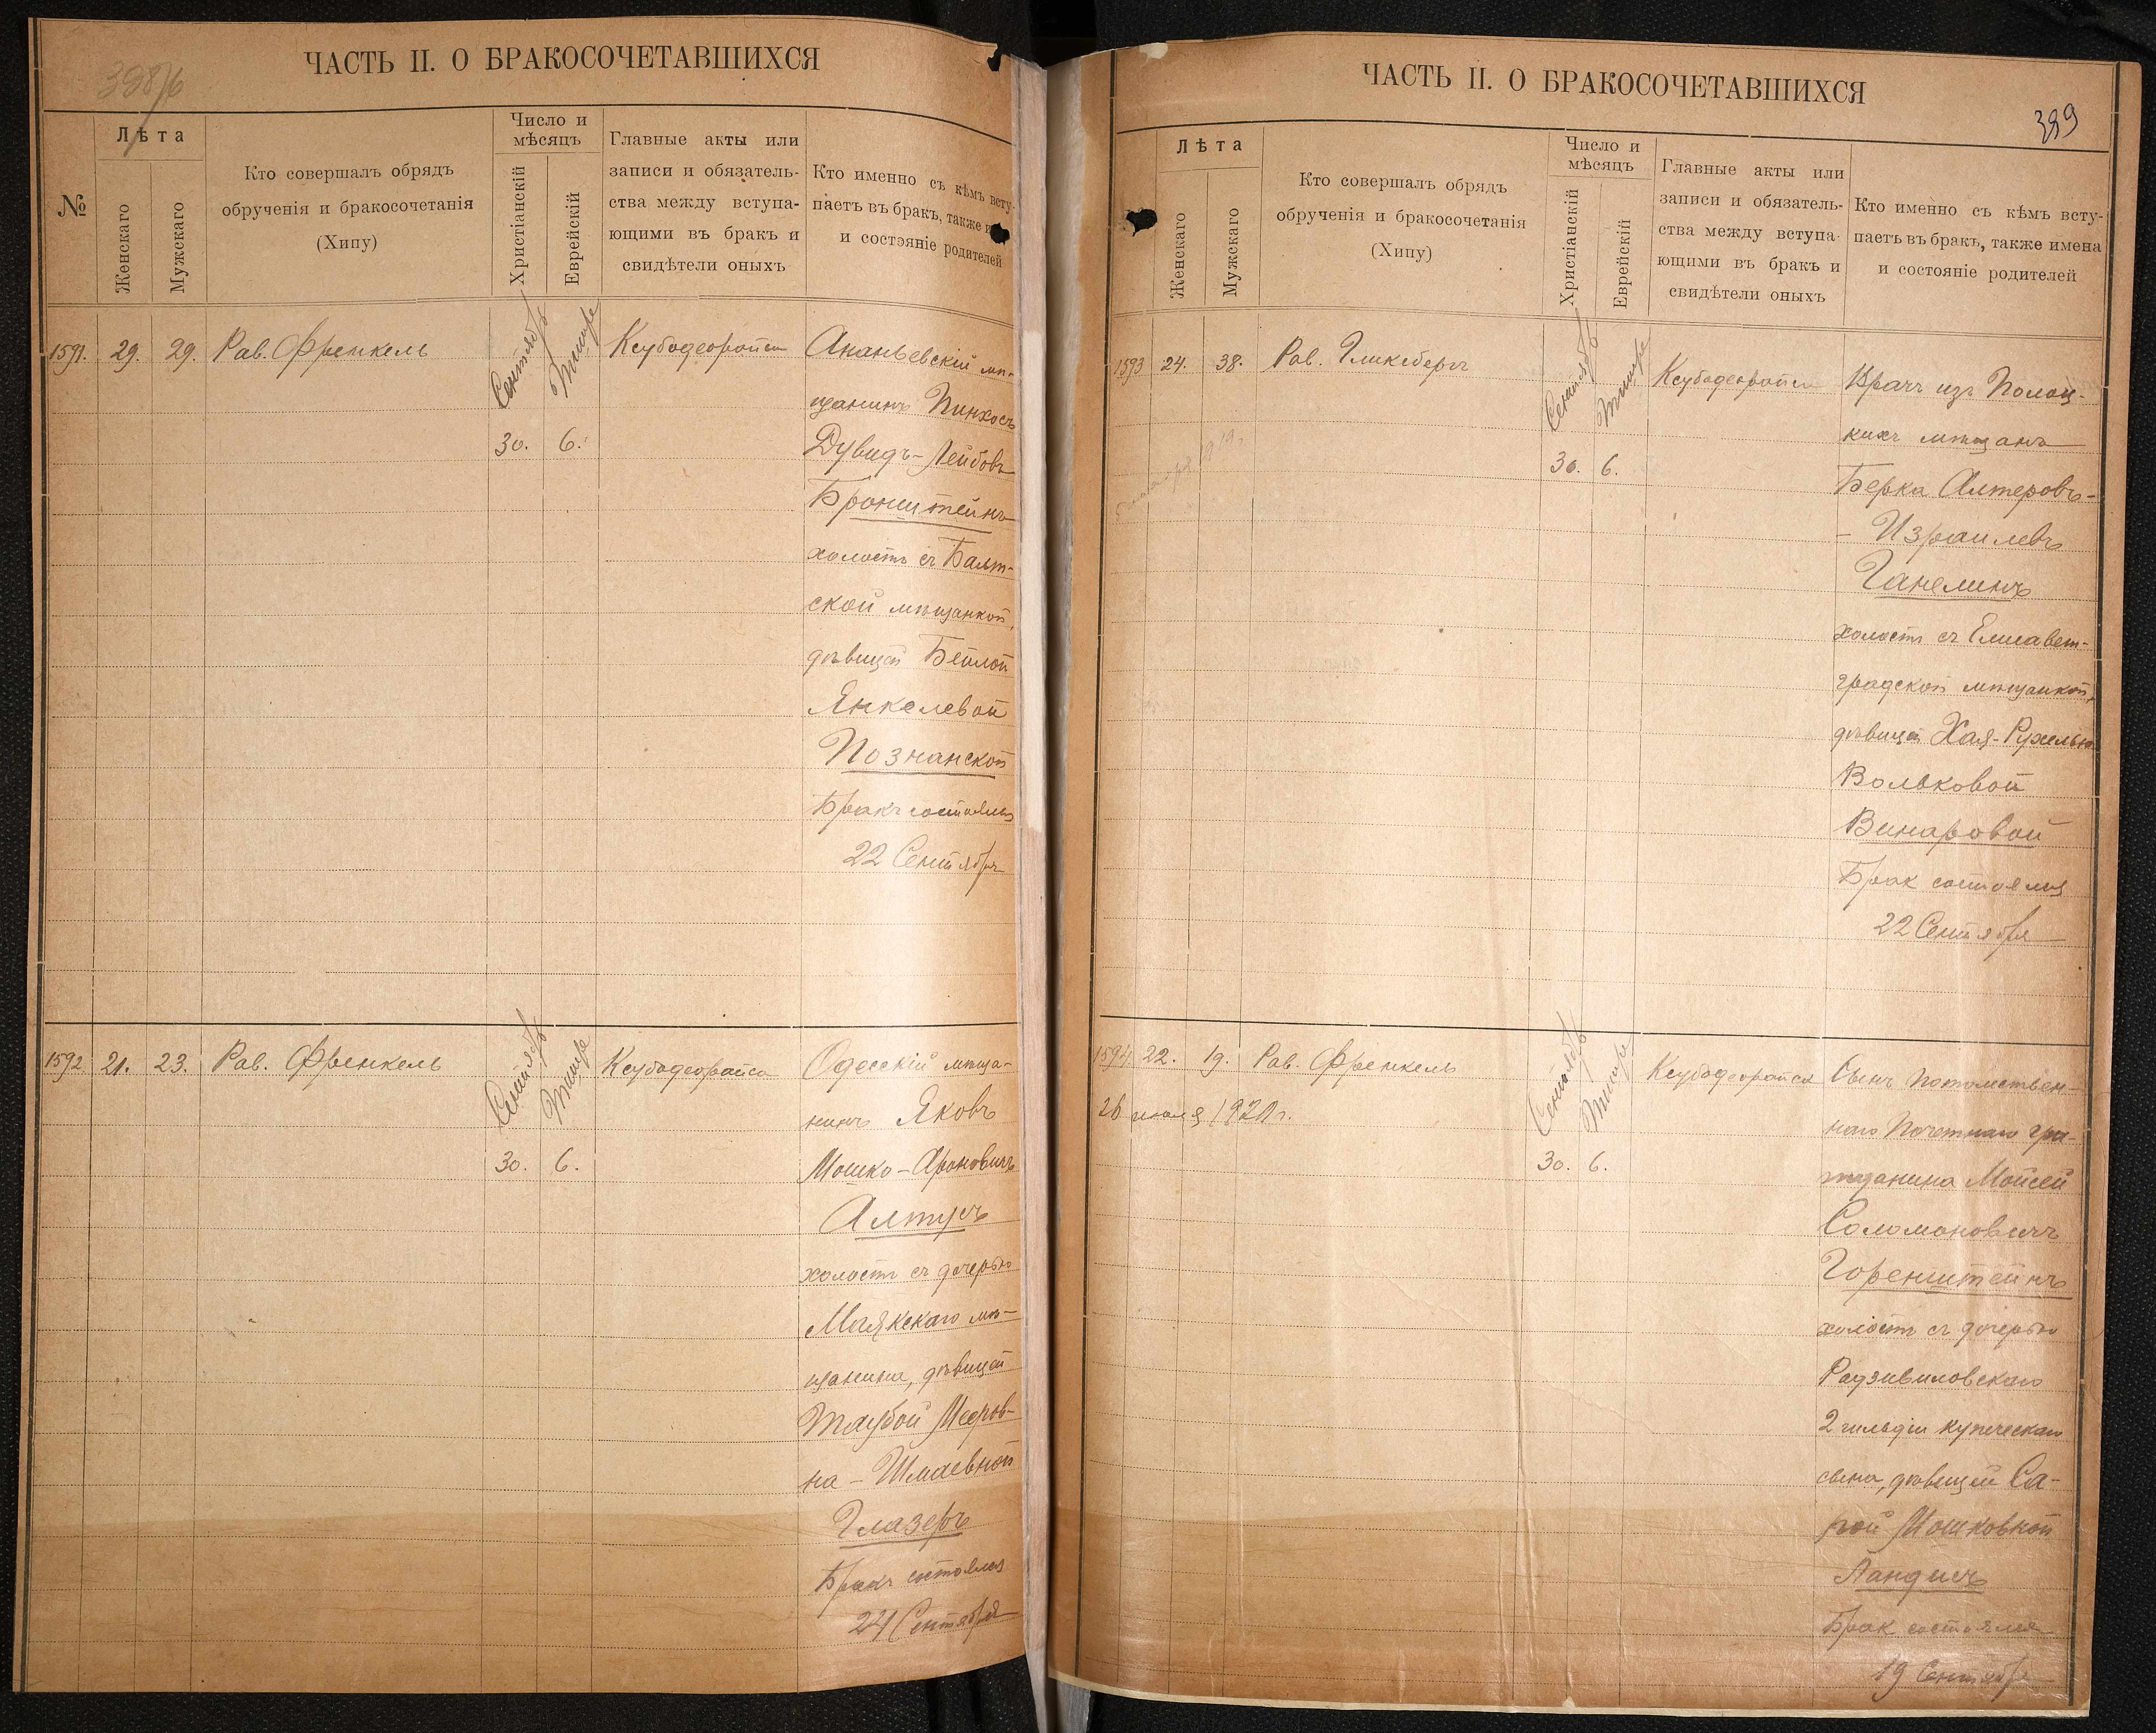 ЧАСТЬ II. О БРАКОСОЧЕТАВШИХСЯ
№
Лѣта
Женскаго
Мужскаго
Кто совершалъ обрядъ
обрученія и бракосочетанія
(Хипу)
Число и
мѣсяцъ
Христіанскій
Еврейскій
Главные акты или
записи и обязатель-
ства между вступа-
ющими въ бракъ и
свидѣтели оныхъ
Кто именно съ кѣмъ всту-
паетъ въ бракъ, также
и состояніе родителей
1591. 29. 29. Рав. Френкель
Сентябрь Тишре
30. 6.
Ксубодеорайса
Ананьевскій мѣ-
щанинъ Пинхосъ
Дувидъ-Лейбовъ
Бронштейнъ
холостъ съ Балт-
ской мѣщанкой,
дѣвицей Бейлой
Янкелевой
Познанской
Бракъ состоялся
22 Сентября
1592 21. 23. Рав. Френкель
Сентябрь Тишре
30. 6.
Ксубодеорайса
Одесскій мѣща-
нинъ Яковъ
Мошко-Ароновичъ
Алтусъ
холостъ съ дочерью
Маякскаго мѣ-
щанина, дѣвицей
Таубой Мееров-
на-Шмаевной
Глазеръ
Бракъ состоялся
24 Сентября
ЧАСТЬ II. О БРАКОСОЧЕТАВШИХСЯ
389
Лѣта
Женскаго
Мужскаго
Кто совершалъ обрядъ
обрученія и бракосочетанія
(Хипу)
Число и
мѣсяцъ
Христіанскій
Еврейскій
Главные акты или
записи и обязатель-
ства между вступа-
ющими въ бракъ и
свидѣтели оныхъ
Кто именно съ кѣмъ всту-
паетъ въ бракъ, также имена
и состояніе родителей
1593 24. 38. Рав. Гликсбергъ
Сентябрь Тишре
30. 6.
Ксубодеорайса
Врачъ изъ Полоц-
кихъ мѣщанъ
Берка Алтеровъ-
- Израилевъ
Ганелинъ
холостъ съ Елисавет-
градской мѣщанкой,
дѣвицей Хая-Рухелью
Вольковой
Винаровой
Брак состоялся
22 Сентября
1594 22. 19. Рав. Френкель
26 июля 1921 г.
Сентябрь Тишре
30. 6.
Ксубодеорайса
Сынъ потомствен-
наго почетнаго гра-
жданина Мойсей
Соломоновичъ
Горенштейнъ
холостъ съ дочерью
Радзивиловскаго
2 гильдіи купеческаго
сына, дѣвицей Са-
рой Мошковной
Ландисъ
Брак состоялся
19 Сентября